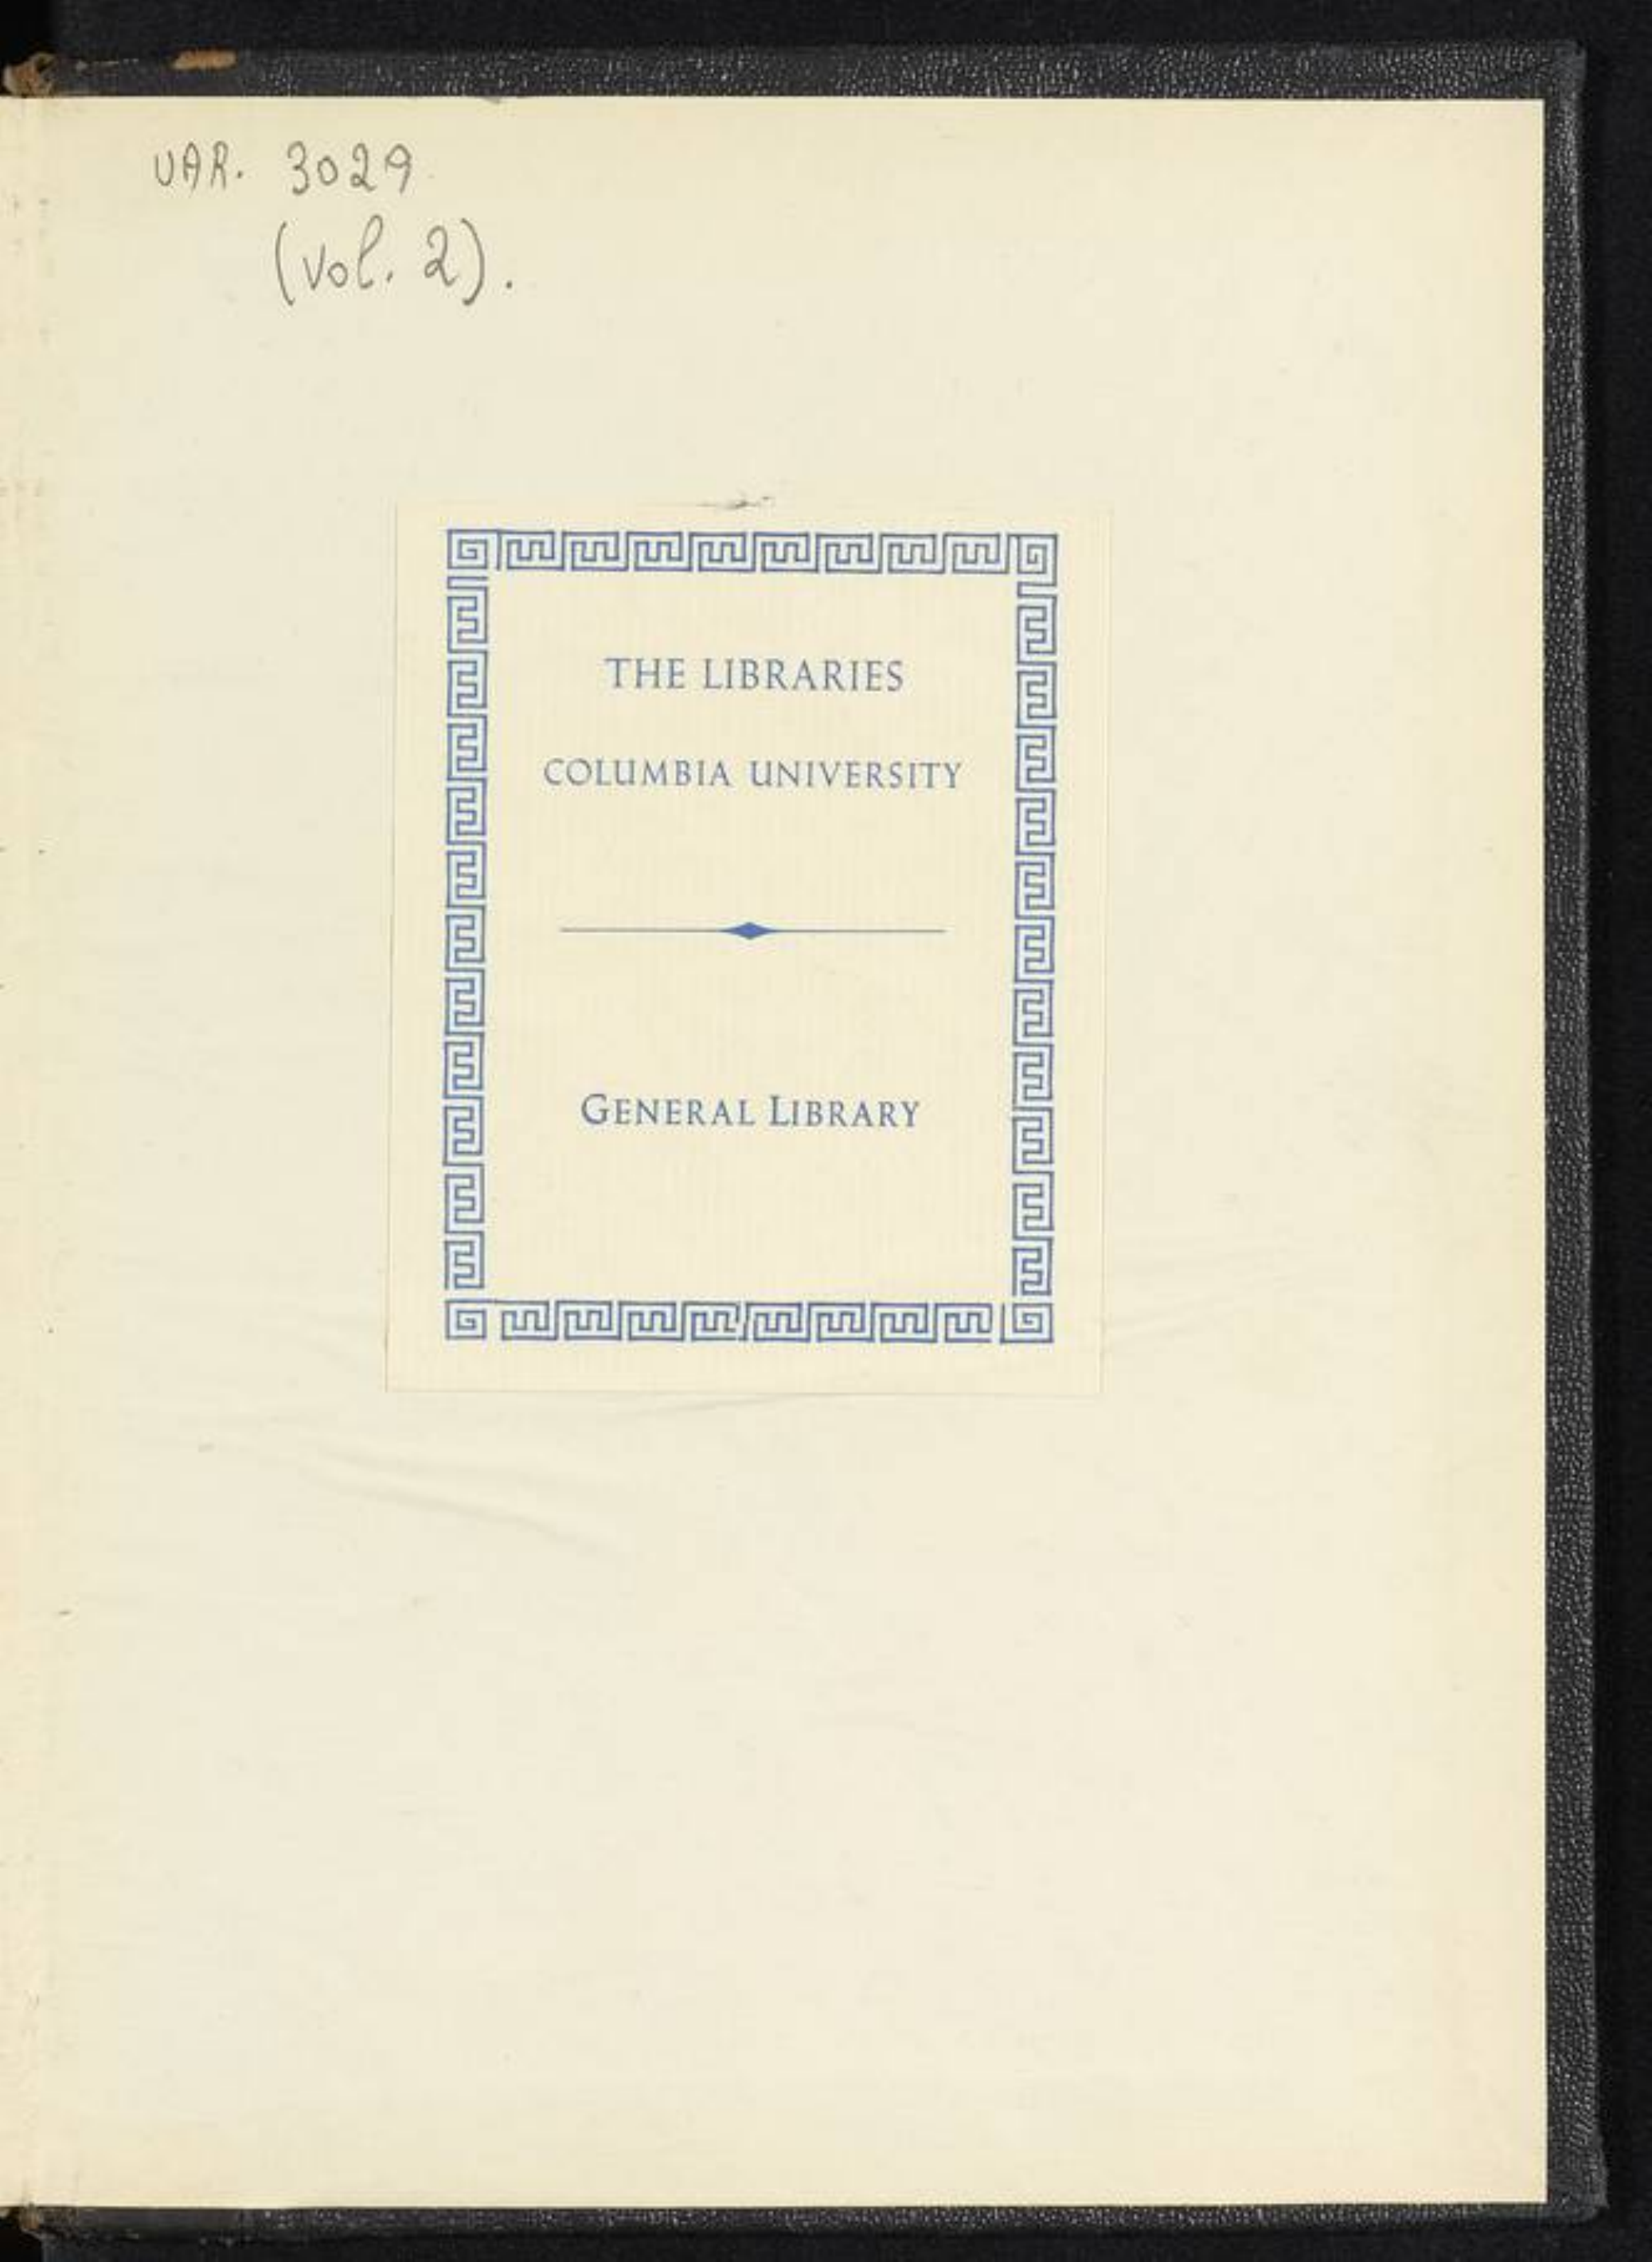 VAR. 3029
(vol. 2).
THE LIBRARIES
COLUMBIA UNIVERSITY
GENERAL LIBRARY